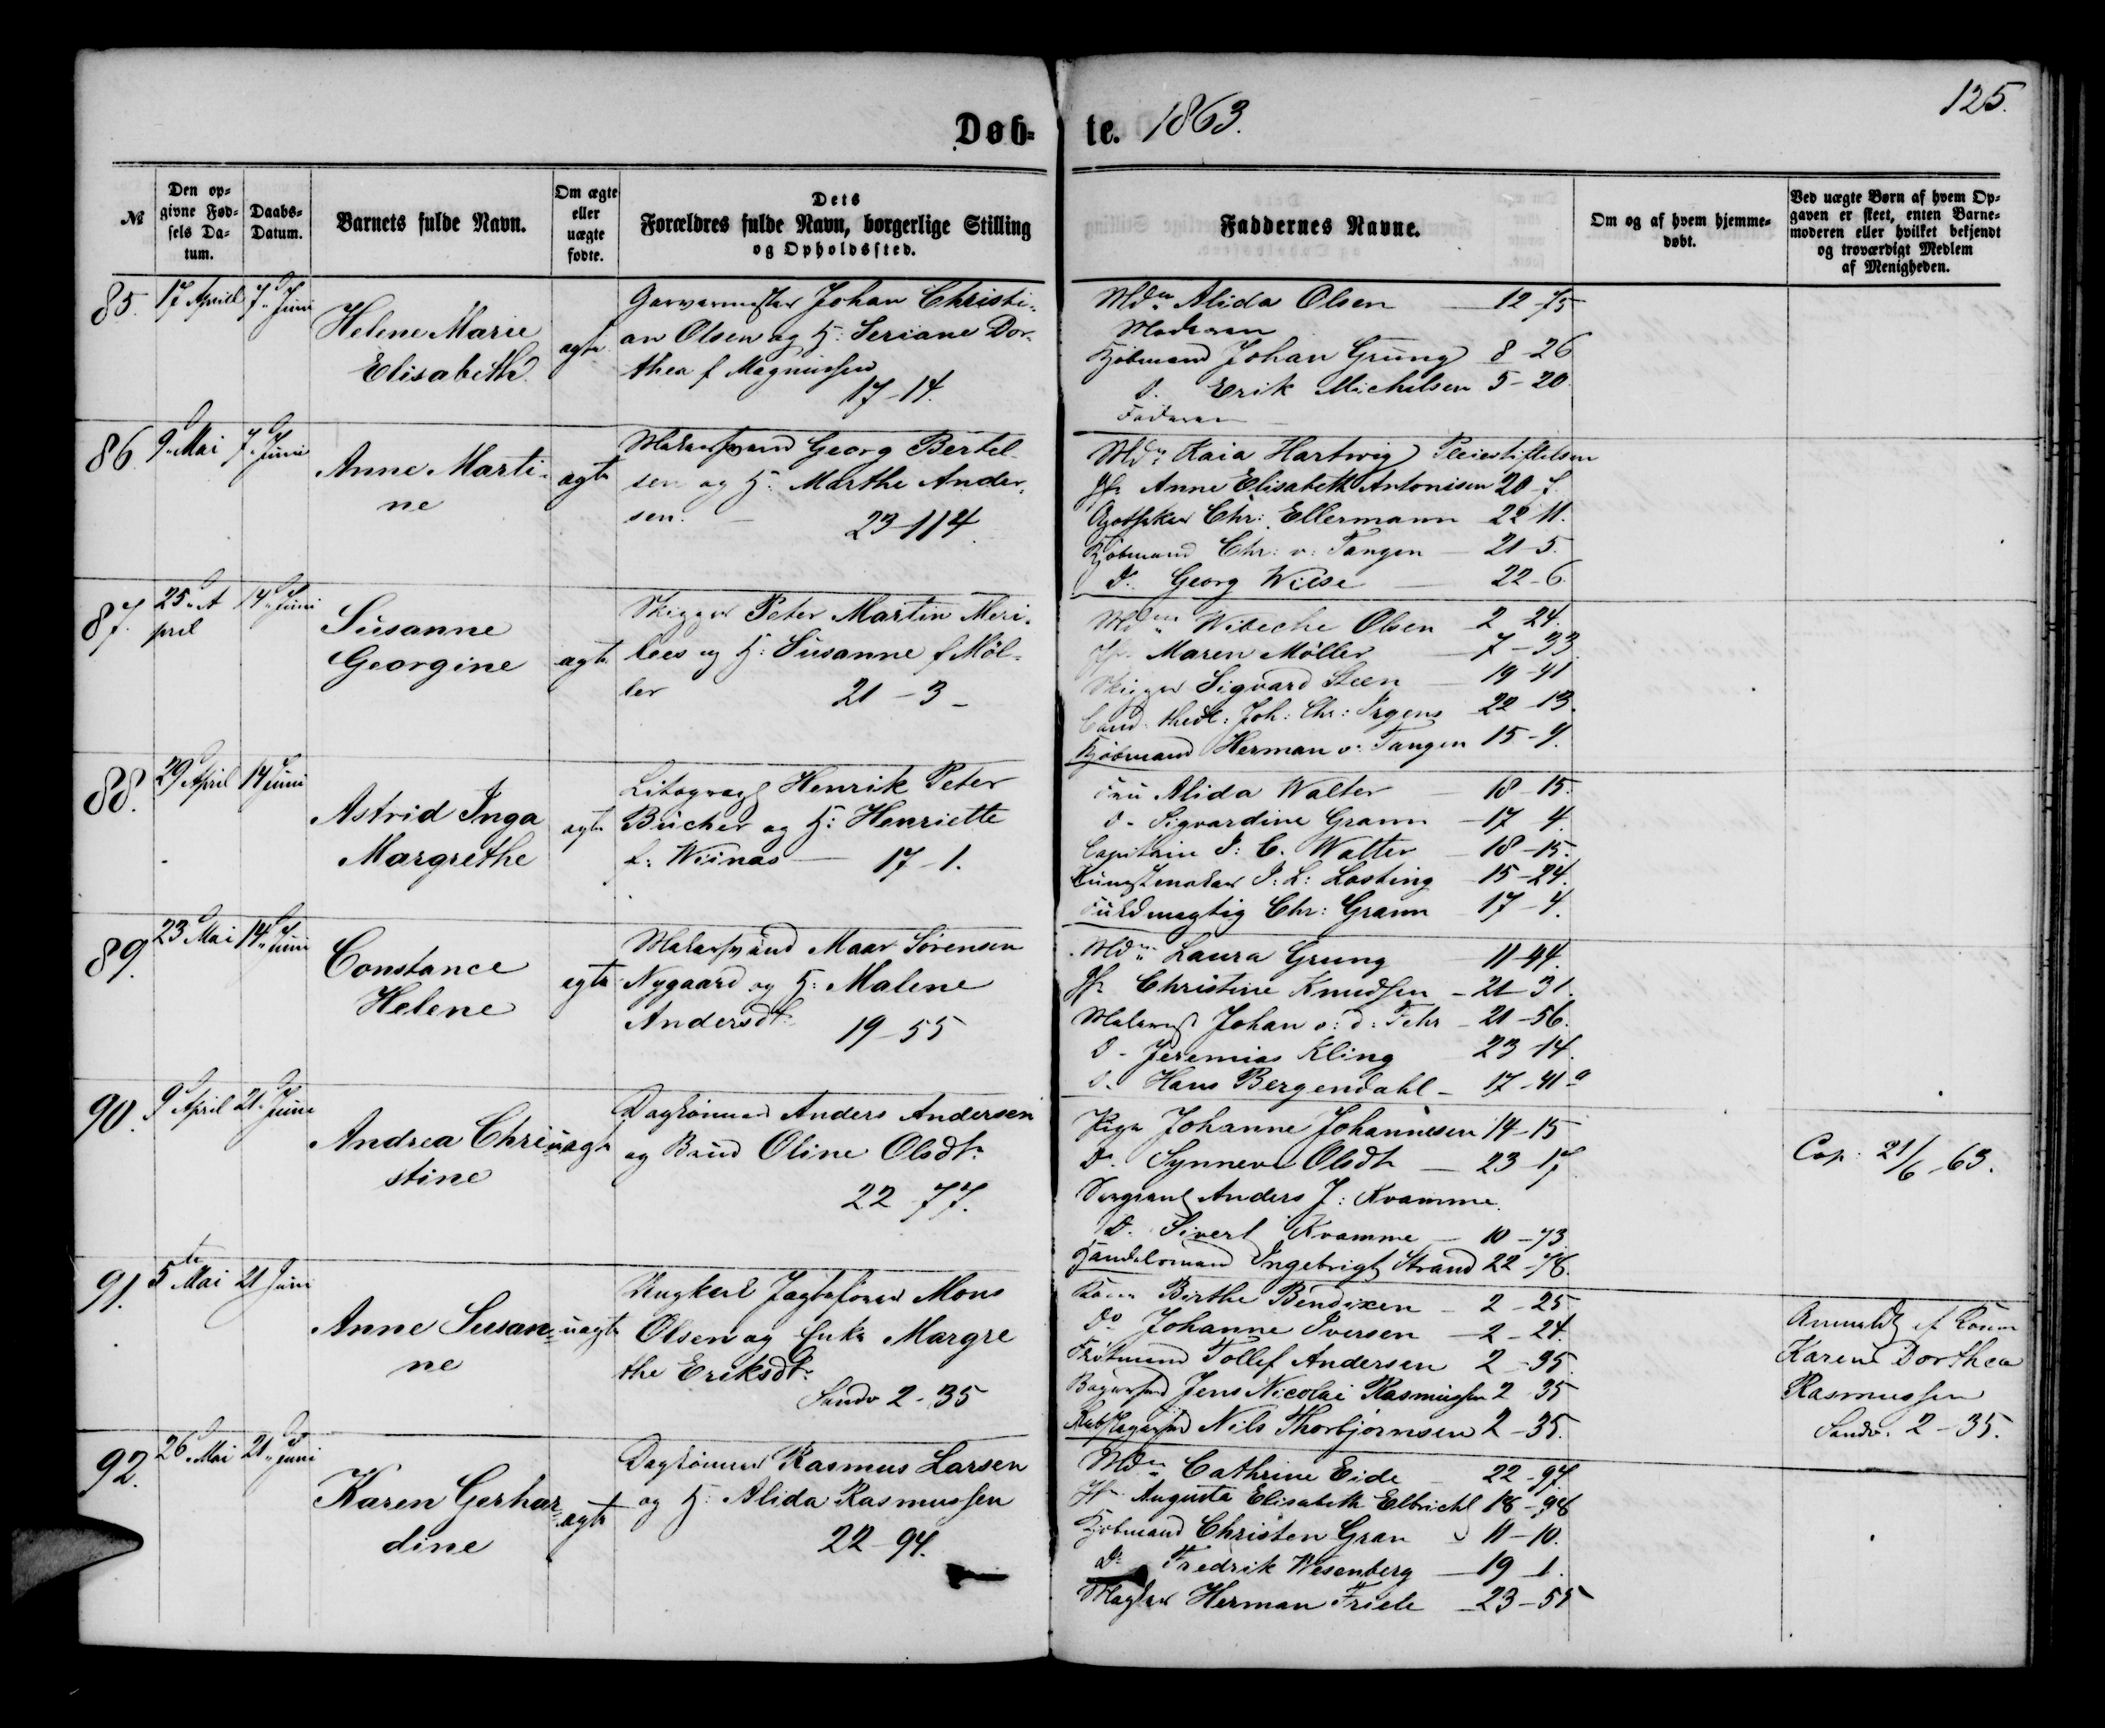 125.
Døb- te. 1863.
№
Den opgivne Fødsels Datum.
Daabs-Datum.
Barnets fulde Navn.
Om ægte eller uægte fødte.
Dets Forældres fulde Navn, borgerlige Stilling og Opholdssted.
Faddernes Navne.
Om og af hvem hjemmedøbt.
Ved uægte Børn af hvem Opgaven er skeet, enten Barnemoderen eller hvilket bekjendt og troværdigt Medlem af Menigheden.
85. 17 April 7 Juni
Helene Marie
Elisabeth
ægte
Garvermester Johan Christi-
an Olsen og H: Seriane Dor-
thea f Magnussen
17-14.
Mdm Alida Olsen 12-75
Moderen
Kjøbmand Johan Grung 8-26
D. Erik Michelsen 5-20.
Faderen
86. 9 Mai 7 Juni
Anne Marti-
ne
ægte
Malersvend Georg Bertel-
sen og H: Marthe Ander-
sen.
23-114.
Mdm Kaia Hartwig Pleiestiftelsen
Jfr Anne Elisabeth Antonisen 20-7.
Apotheker Chr: Ellermann 22-11.
Kjøbmand Chr: v: Tangen 21-5.
D. Georg Wiese 22-6.
87. 25 A-
pril 14 Juni
Susanne
Georgine
ægte
Skipper Peter Martin Meri-
lees og H: Susanne f Møl-
ler 21-3
Mdm Wibeche Olsen 2 24.
Jfr Maren Møller 7-33.
Skipper Sigvard Steen 19-41
Cand. theol: Joh: Chr: Irgens 22-13.
Kjøbmand Herman v: Tangen 15-9.
88. 29 April 14 Juni
Astrid Inga
Margrethe
ægte
Litograph Henrik Peter
Bücher og H: Henriette
f: Wiinas 17-1.
Fru Alida Walter 18-15.
D. Sigvardine Grann 17 4.
Capitain J: C. Walter 18-15.
Kunstmaler J: L: Losting 15-24.
Fuldmægtig Chr: Grann 17-4.
89. 23 Mai 14 Juni
Constance
Helene
ægte
Malersvend Maar Sörensen
Nygaard og H: Malene
Andersdtr 19-55
Mdm Laura Grung 11-44.
Jfr Christine Knudsen 21-31.
Malerm Johan v: d: Fehr 21-56.
D. Jeremias Kling 23-14.
D. Hans Bergendahl 17-41 a
90. 9 April 21 Juni
Andrea Chri-
stine
uægte
Daglönner Anders Andersen
og Brud Oline Olsdtr
22 77.
Pige Johanne Johannesen 14-15
D. Synneve Olsdtr 23-17.
Sergeant Anders J: Kvamme.
D. Sivert Kvamme 10-73.
Handelsmand Ingebrigt Strand 22-78.
Cop: 21/6-63.
91. 5te Mai 21 Juni
Anne Susan-
ne
uægte
Ungkarl Jagtefører Mons
Olsen og Enke Margre
the Eriksdtr
Sandv 2-35
Kone Berthe Bendixen 2-25
Do Johanne Iversen 2-24.
Tollef Andersen 2-35.
Bagersvend Jens Nicolai Rasmussen 2-35
Nils Thorbjørnsen 2-35.
Anmeldt af Konen
Karen Dorthea
Rasmussen
Sandv. 2-35.
92. 26 Mai 21 Juni
Karen Gerhar-
dine
ægte
Daglönner Rasmus Larsen
og H: Alida Rasmussen
22-94.
Mdm Cathrine Eide 22-97.
Jfr Augusta Elisabeth Elbricht 18-98
Kjøbmand Christen Gran 11-10.
Dr Fredrik Wesenberg 19-1.
Mægler Herman Friele 23-55